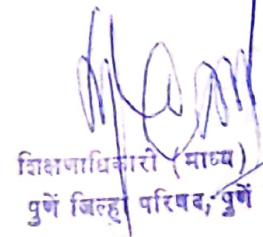 शिक्षणाधिकारी (माध्य)
पुणें जिल्हा परिषद, पुणें